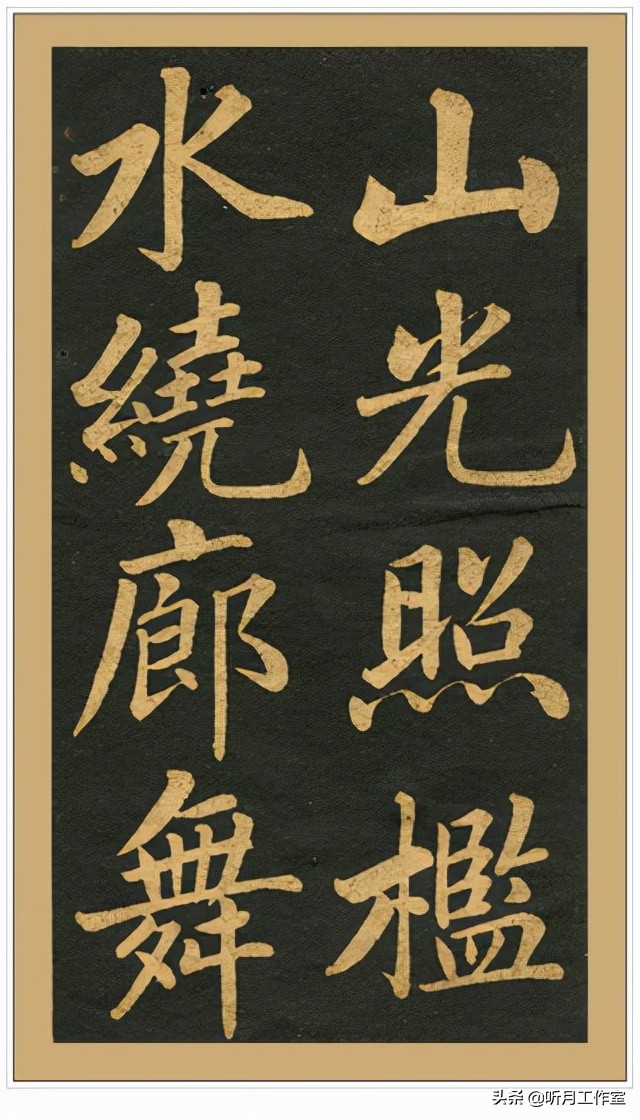 山光照檻
水繞廊舞
头条 @听月工作室